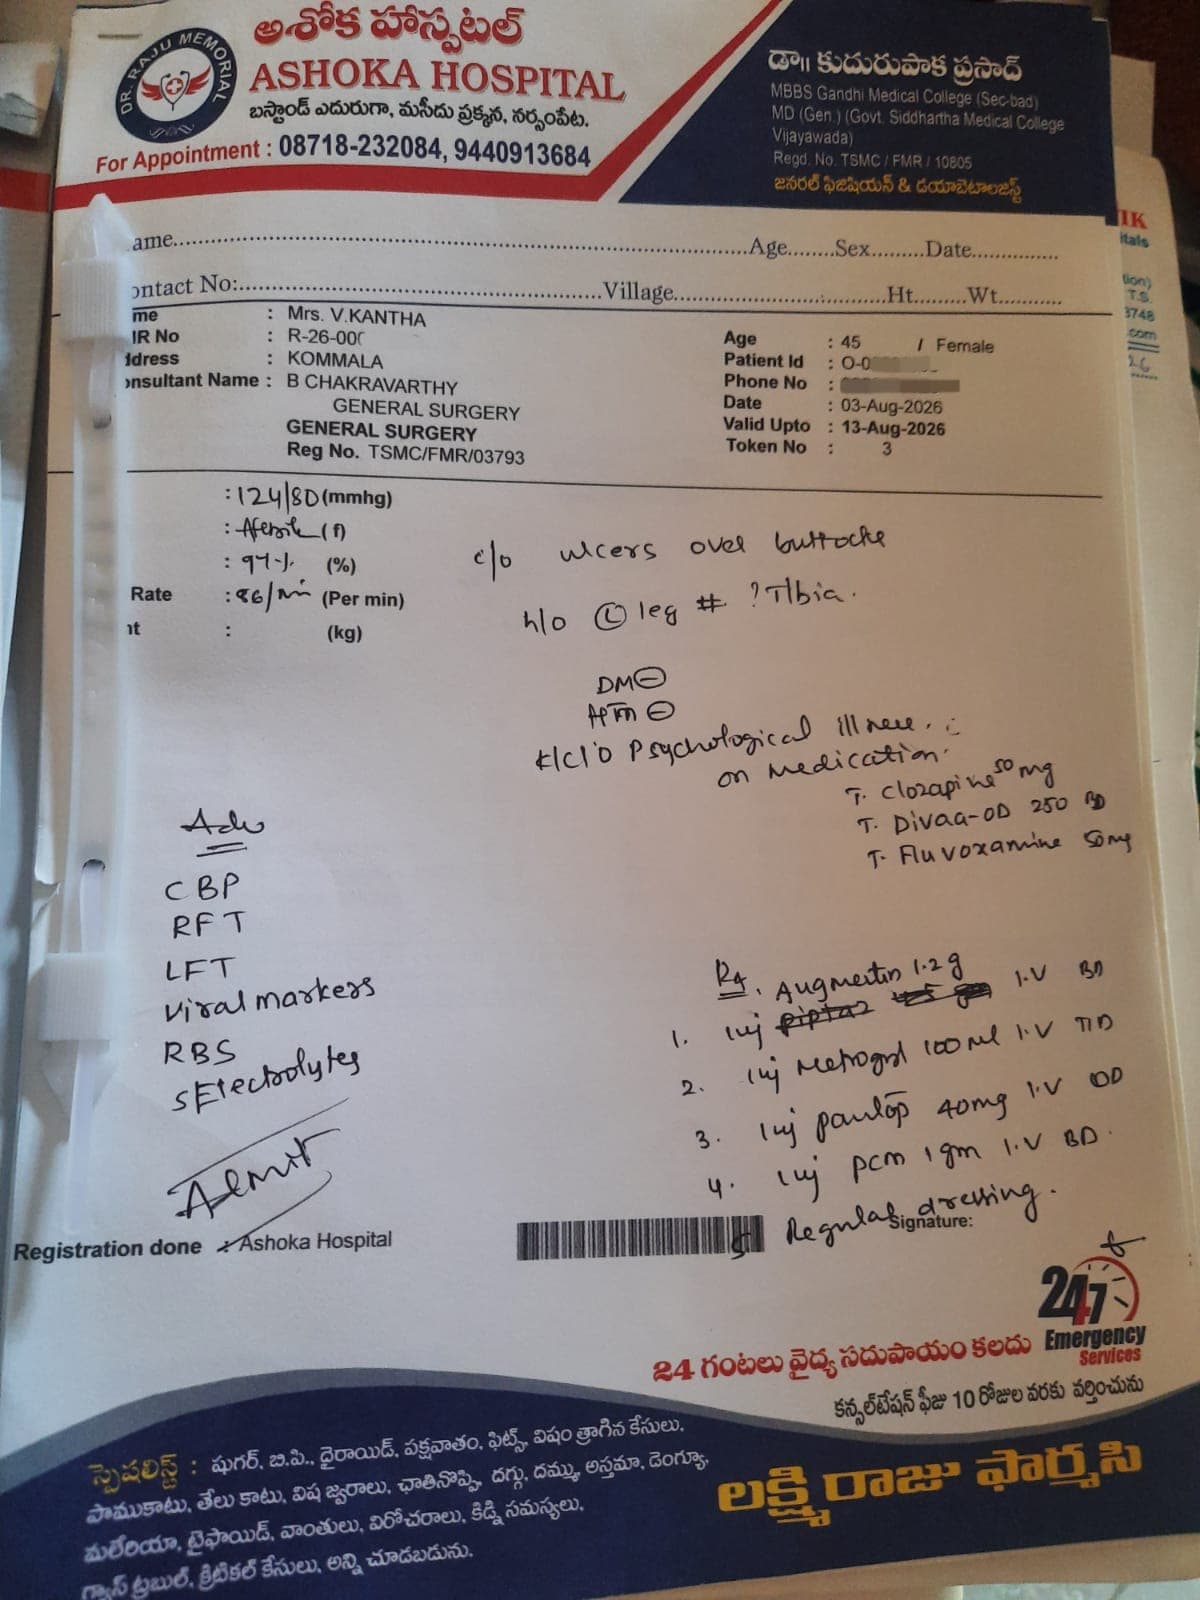 అశోక హాస్పటల్
DR. RAJU MEMORIAL
ASHOKA HOSPITAL
బస్టాండ్ ఎదురుగా, మసీదు ప్రక్కన, నర్సంపేట.
For Appointment : 08718-232084, 9440913684
డా|| కుదురుపాక ప్రసాద్
MBBS Gandhi Medical College (Sec-bad)
MD (Gen.) (Govt. Siddhartha Medical College
Vijayawada)
Regd. No. TSMC / FMR / 10805
జనరల్ ఫిజిషియన్ & డయాబెటాలజిస్ట్
IK
itals
tion)
T.S.
3748
.com
26
ame...........Age........Sex.........Date...............
ontact No:...........Village...........Ht.........Wt...........
me : Mrs. V.KANTHA
IR No : R-26-00
ddress : KOMMALA
onsultant Name : B CHAKRAVARTHY
GENERAL SURGERY
GENERAL SURGERY
Reg No. TSMC/FMR/03793
Age : 45 / Female
Patient Id : O-0
Phone No :
Date : 03-Aug-2026
Valid Upto : 13-Aug-2026
Token No : 3
: 124/80 (mmhg)
: Afebrile (f)
: 97% (%)
Rate : 86/min (Per min)
nt : (kg)
c/o ulcers over buttocks
h/o Ⓛ leg # ? Tibia.
DM ⊖
HTN ⊖
K/c/o Psychological illness.
on medication.
T. Clozapine 50 mg
T. Divaa-OD 250 BD
T. Fluvoxamine 50mg
Adv
CBP
RFT
LFT
Viral markers
RBS
S Electrolytes
Admit
Rx. Augmentin 1.2 g
1. inj piptaz I.V BD
2. inj Metrogyl 100 ml I.V TID
3. inj pantop 40mg I.V OD
4. inj pcm 1 gm I.V BD.
5 Regular dressing.
Signature:
Registration done : Ashoka Hospital
24/7
Emergency
Services
24 గంటలు వైద్య సదుపాయం కలదు
కన్సల్టేషన్ ఫీజు 10 రోజుల వరకు వర్తించును
స్పెషలిస్ట్ : షుగర్, బి.పి., థైరాయిడ్, పక్షవాతం, ఫిట్స్, విషం త్రాగిన కేసులు,
పాముకాటు, తేలు కాటు, విష జ్వరాలు, ఛాతినొప్పి, దగ్గు, దమ్ము, అస్తమా, డెంగ్యూ,
మలేరియా, టైఫాయిడ్, వాంతులు, విరోచరాలు, కిడ్ని సమస్యలు,
గ్యాస్ ట్రబుల్, క్రిటికల్ కేసులు, అన్ని చూడబడును.
లక్ష్మి రాజు ఫార్మసి